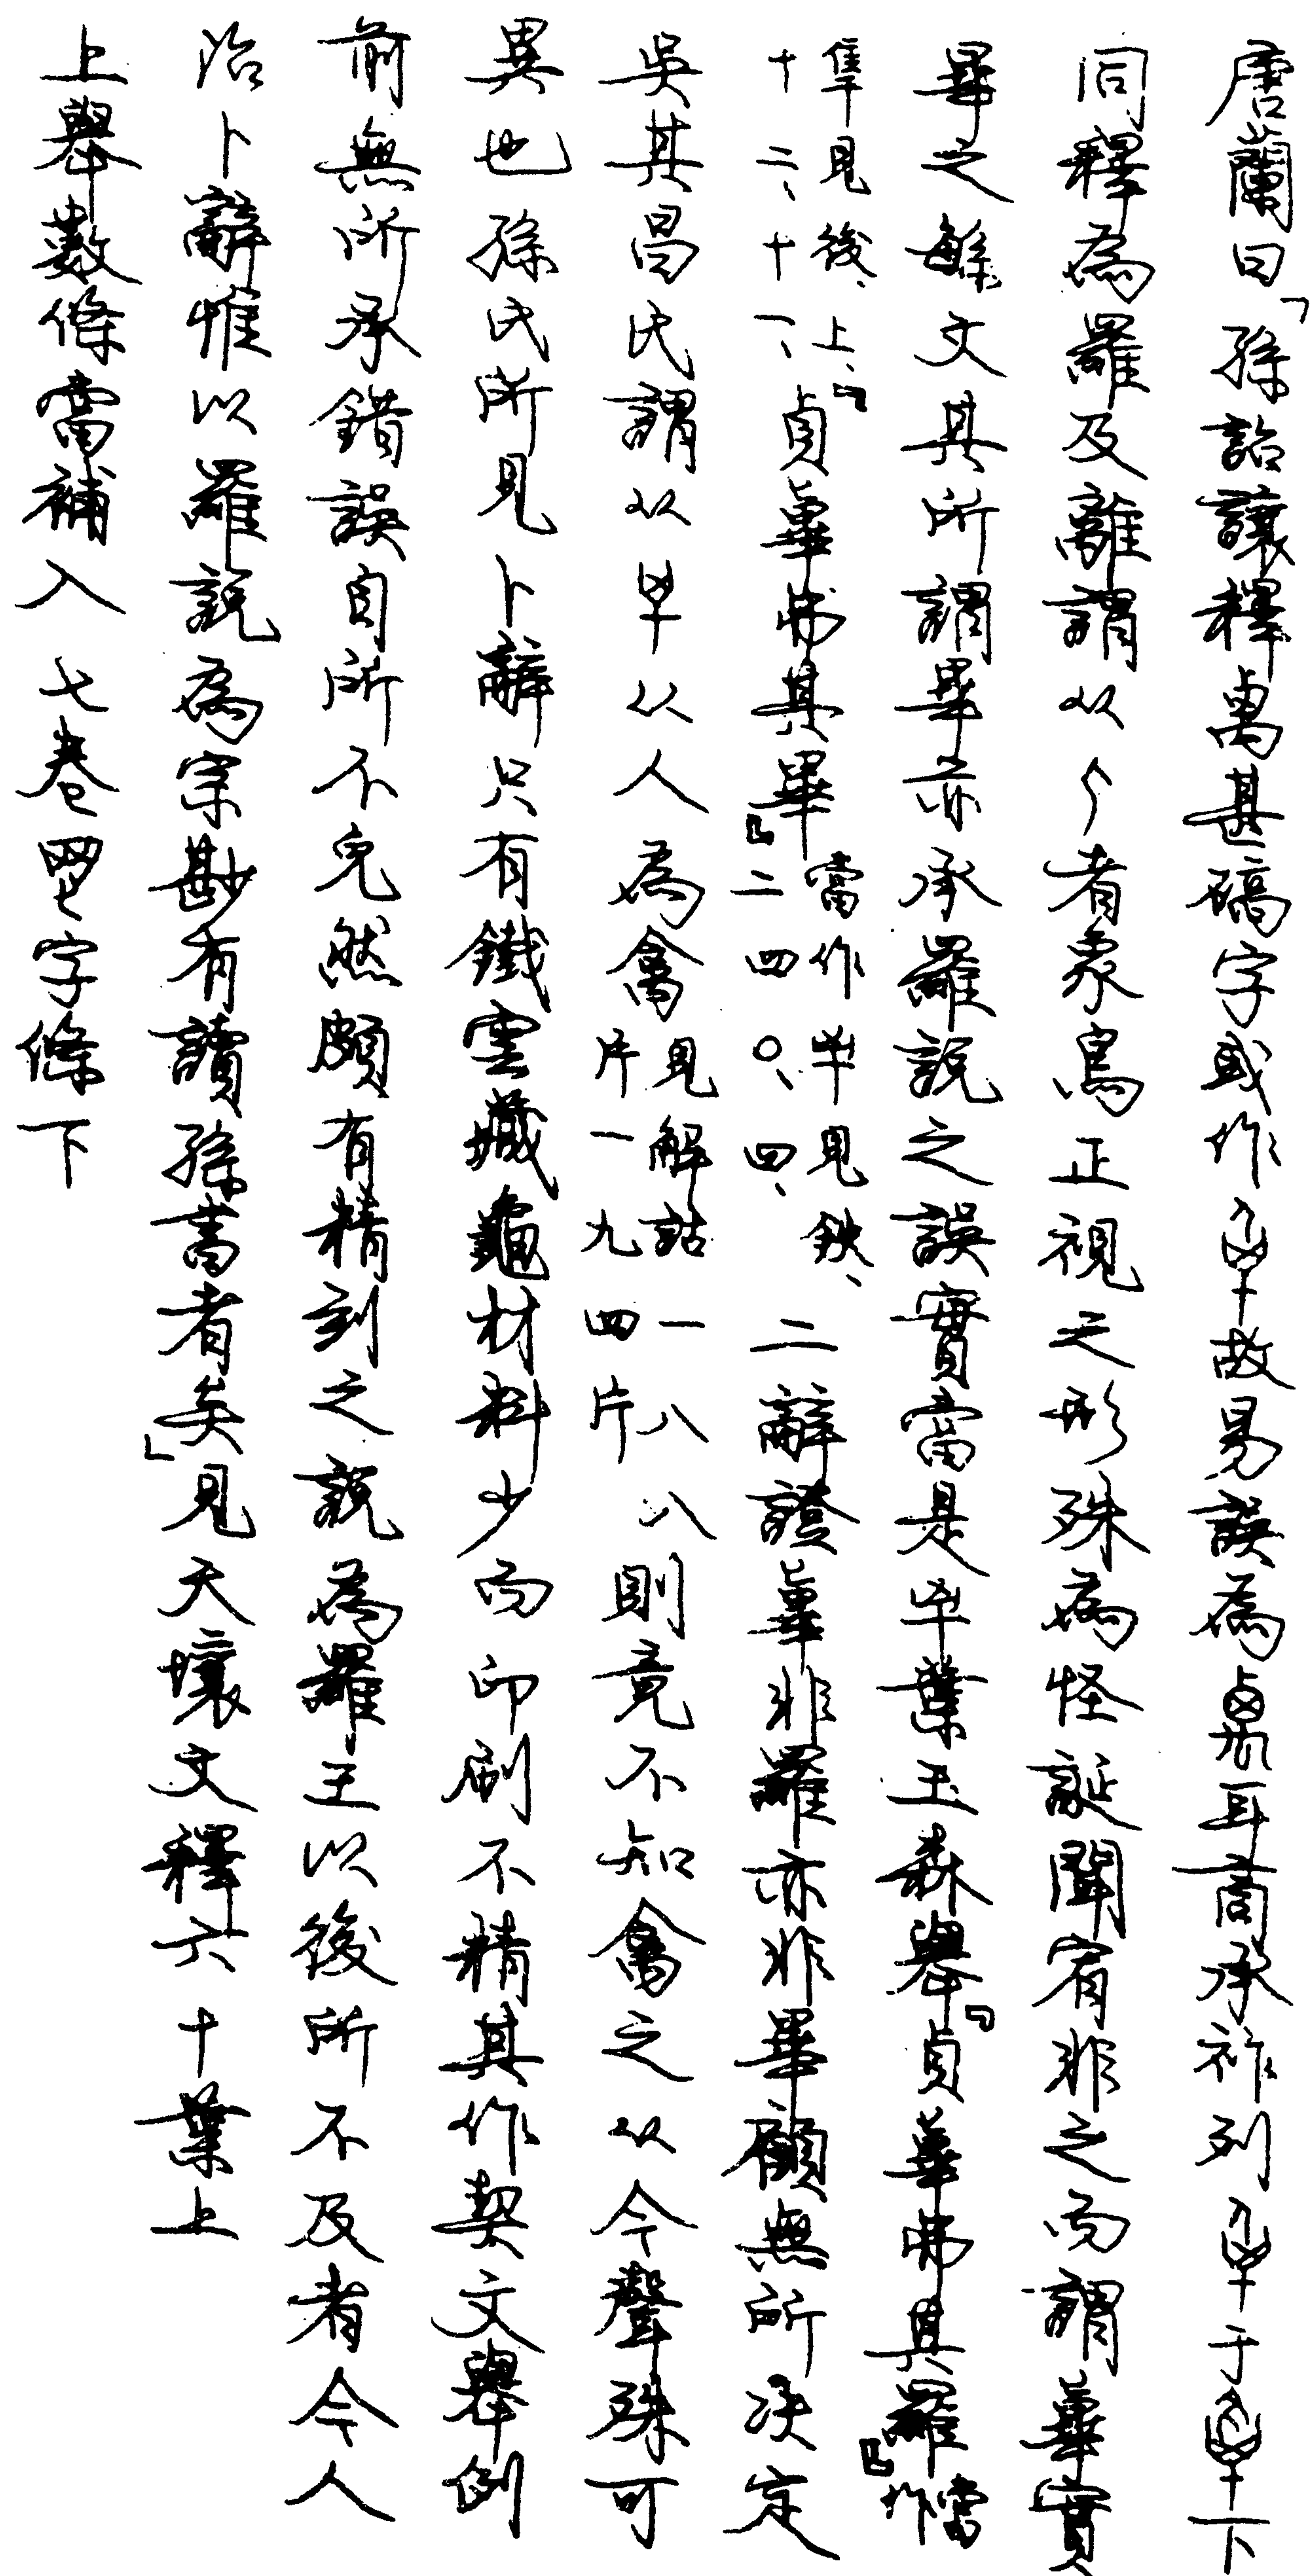 唐蘭曰「孫詒讓釋禼甚礄字或作故易誤為耳商承祚列于下
同釋為羅及離謂从者象鳥正視之形殊為怪誕聞宥非之而謂實
畢之緐文其所謂畢亦承羅說之誤實當是葉玉森舉『貞弗其羅』當作
隼見後、上、十二、十一、『貞弗其畢』當作見鉄、二四〇、四、二辭證非羅亦非畢顧無所決定
吳其昌氏謂从从人為禽見解詁一八八片一九四片則竟不知禽之从今聲殊可
異也孫氏所見卜辭只有鐵雲藏龜材料少而印刷不精其作契文舉例
前無所承錯誤自所不免然頗有精到之說為羅王以後所不及者今人
治卜辭惟以羅說為宗尟有讀孫書者矣」見天壤文釋六十葉上
上舉數條當補入七卷字條下